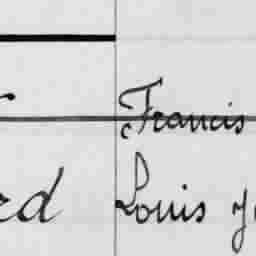 Francis
rd Louis